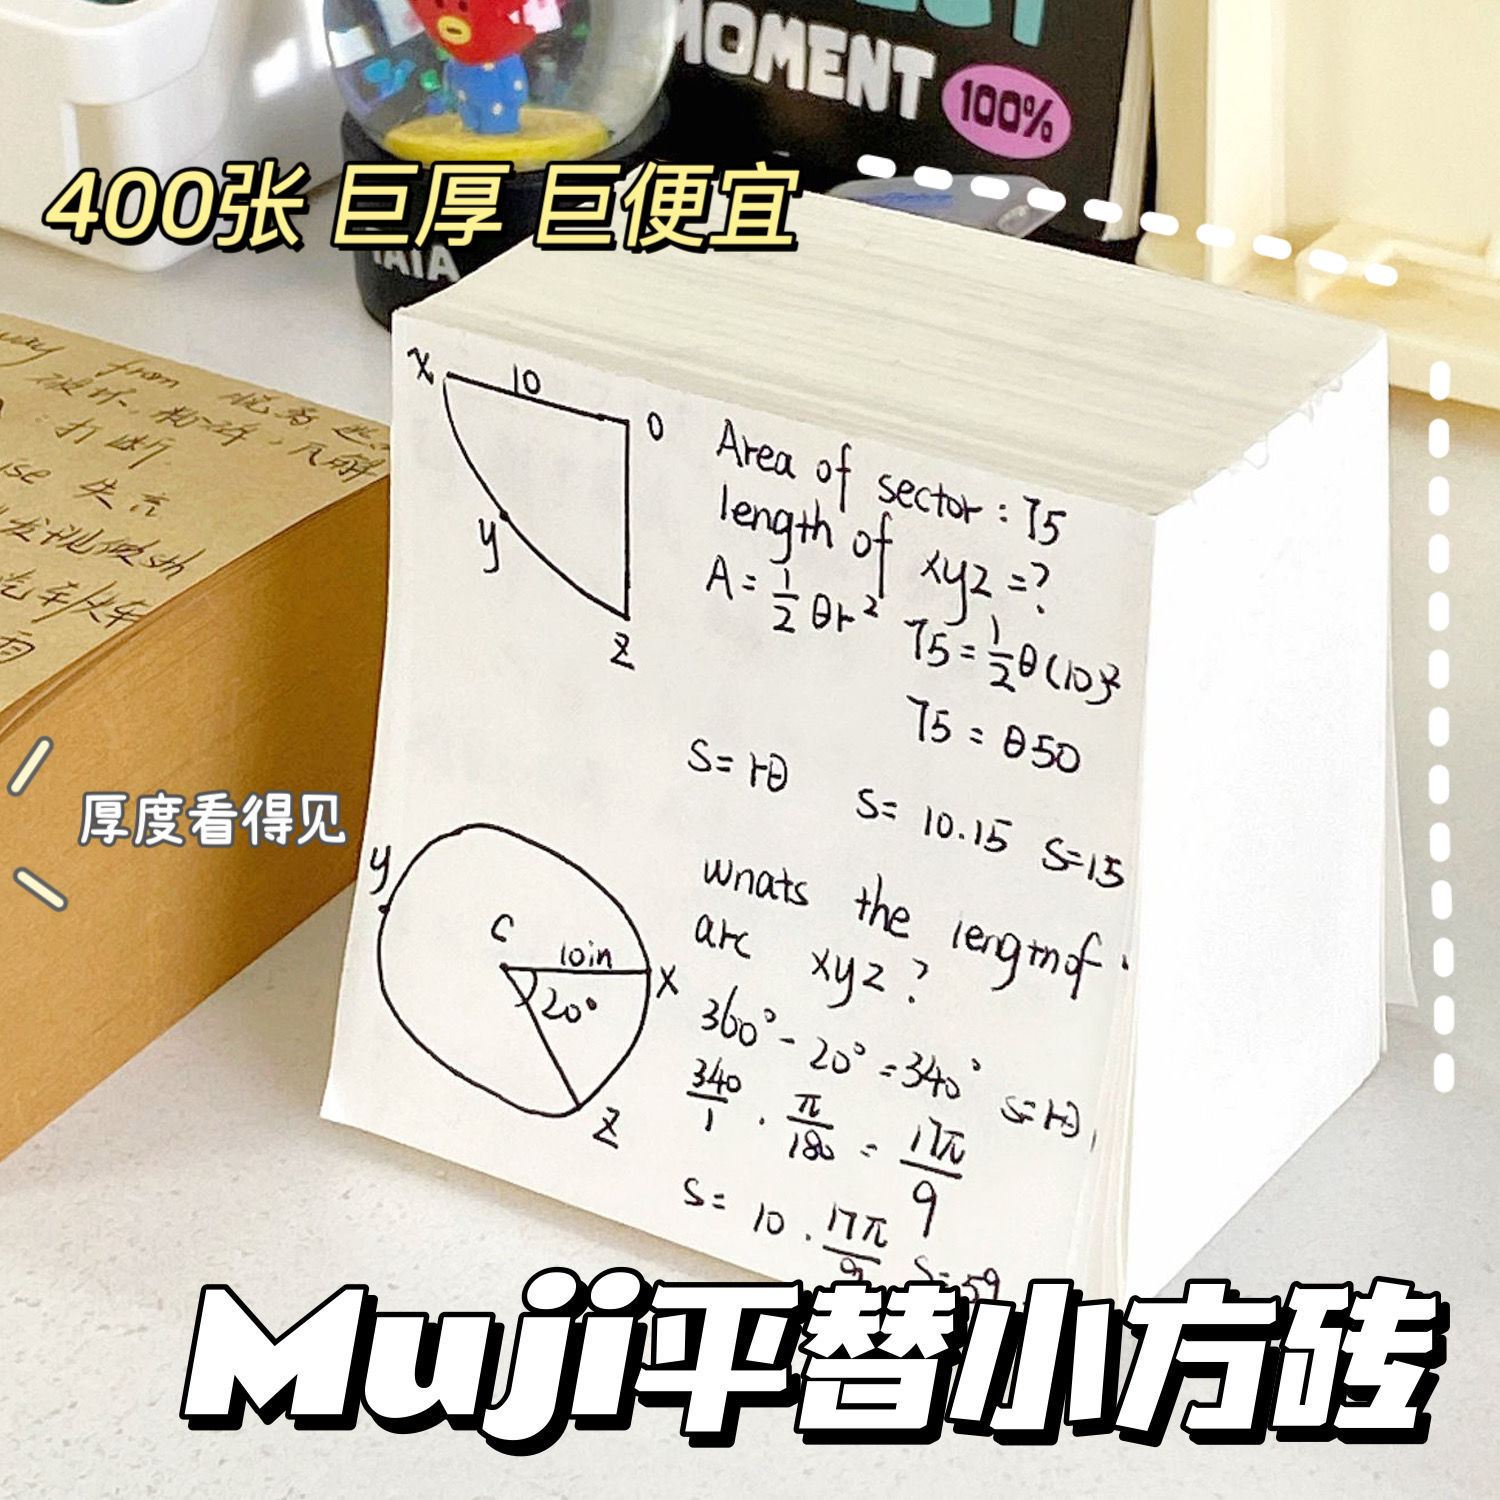 MOMENT
100%
400张 巨厚 巨便宜
TATA
way from
打断
失言
厚度看得见
x 10 0
y
z
Area of sector : 75
length of xyz = ?
A = 1/2 θr²
75 = 1/2 θ(10)²
75 = θ50
S = rθ S = 10.15 S=15
y
c 10in x
20°
z
wnats the length of
arc xyz ?
360° - 20° = 340° S=rθ
340/1 · π/180 = 17π/9
S = 10 · 17π/9 S=59
Muji平替小方砖